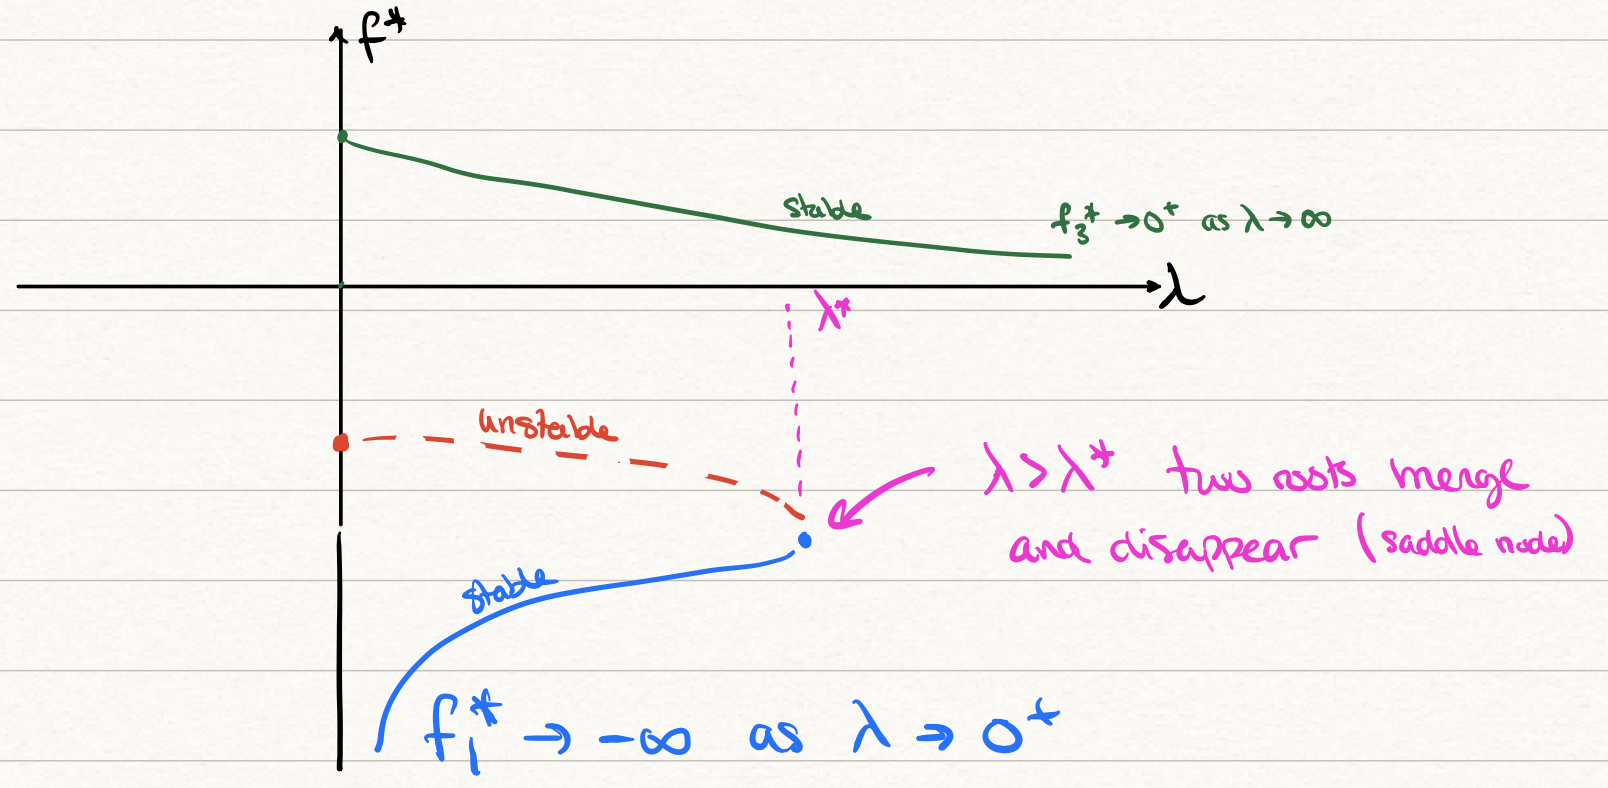 f*
stable
f₃* → 0⁺ as λ → ∞
λ
λ*
unstable
λ > λ* two roots merge
and disappear (saddle node)
stable
f₁* → -∞ as λ → 0⁺